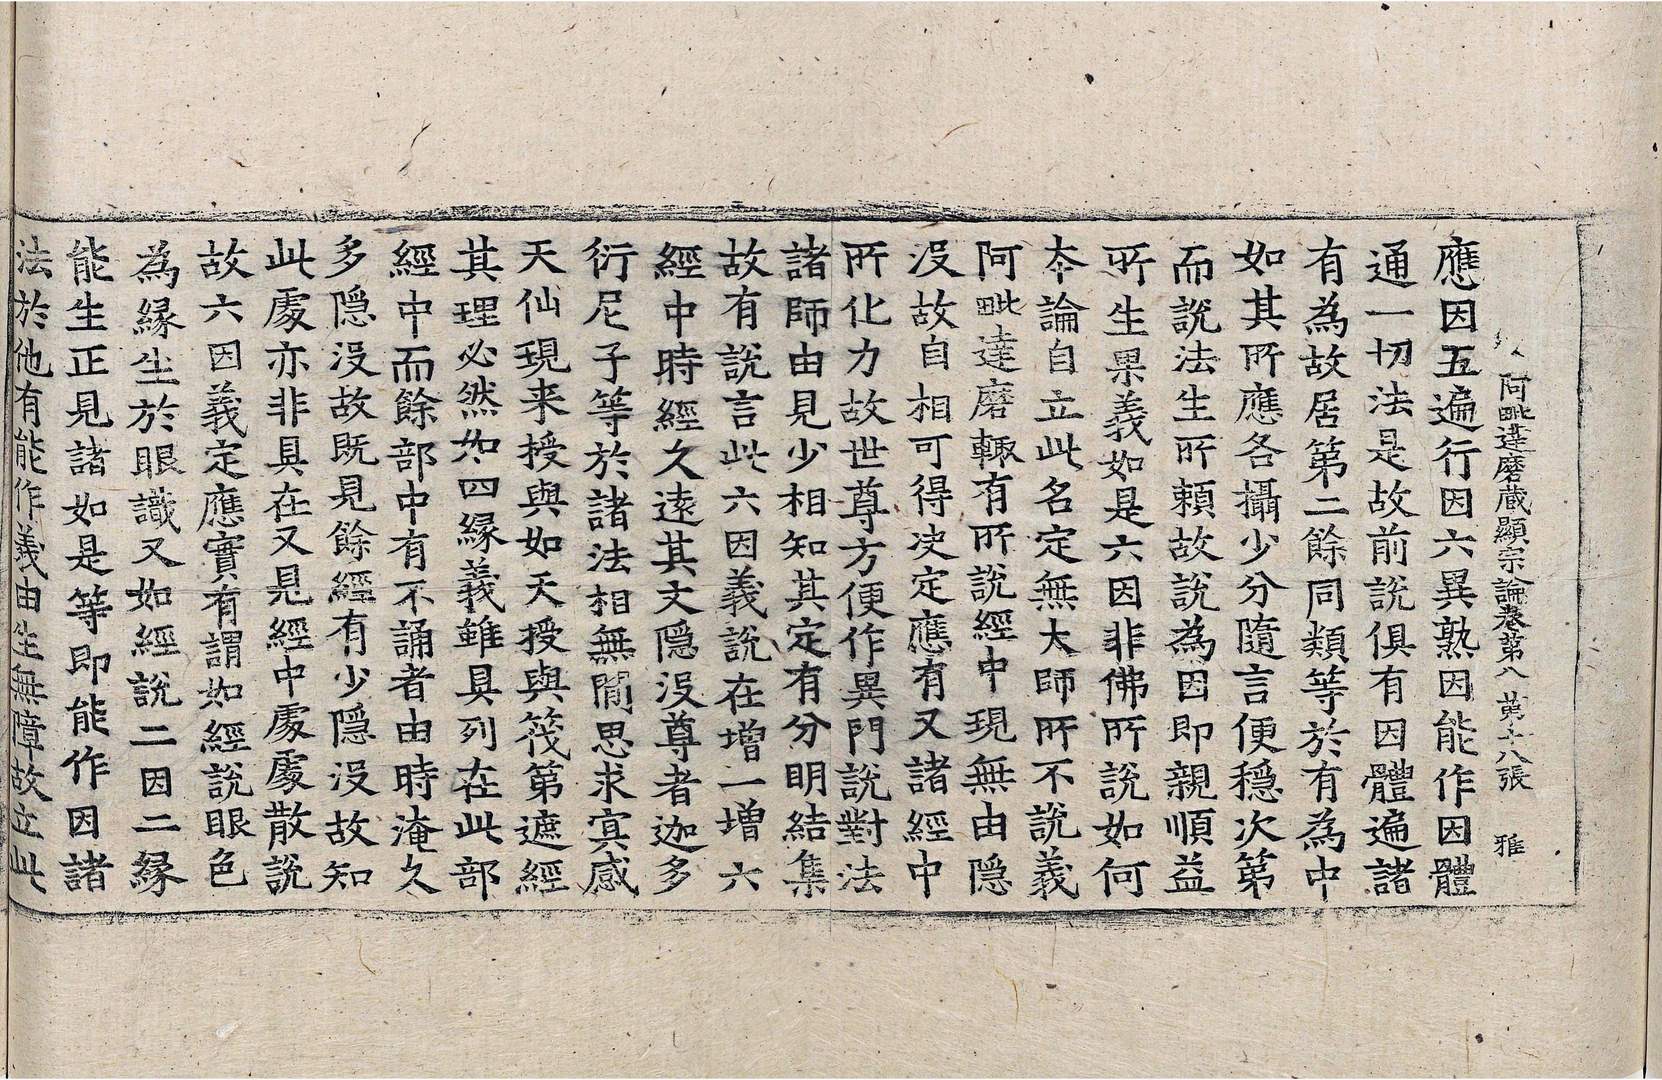 阿毗達磨蔵顯宗論卷第八　第十八張　雅
應因五遍行因六異熟因能作因體
通一切法是故前說俱有因體遍諸
有為故居第二餘同類等於有為中
如其所應各攝少分隨言便穩次第
而說法生所賴故說為因即親順益
所生果義如是六因非佛所說如何
本論自立此名定無大師所不說義
阿毗達磨輙有所說經中現無由隱
沒故自相可得決定應有又諸經中
所化力故世尊方便作異門說對法
諸師由見少相知其定有分明結集
故有說言此六因義說在增一增六
經中時經久遠其文隱沒尊者迦多
衍尼子等於諸法相無閒思求冥感
天仙現来授與如天授與筏第遮經
其理必然如四緣義雖具列在此部
經中而餘部中有不誦者由時淹久
多隱沒故既見餘經有少隱沒故知
此處亦非具在又見經中處處散說
故六因義定應實有謂如經說眼色
為緣生於眼識又如經說二因二緣
能生正見諸如是等即能作因諸
法於他有能作義由生無障故立此